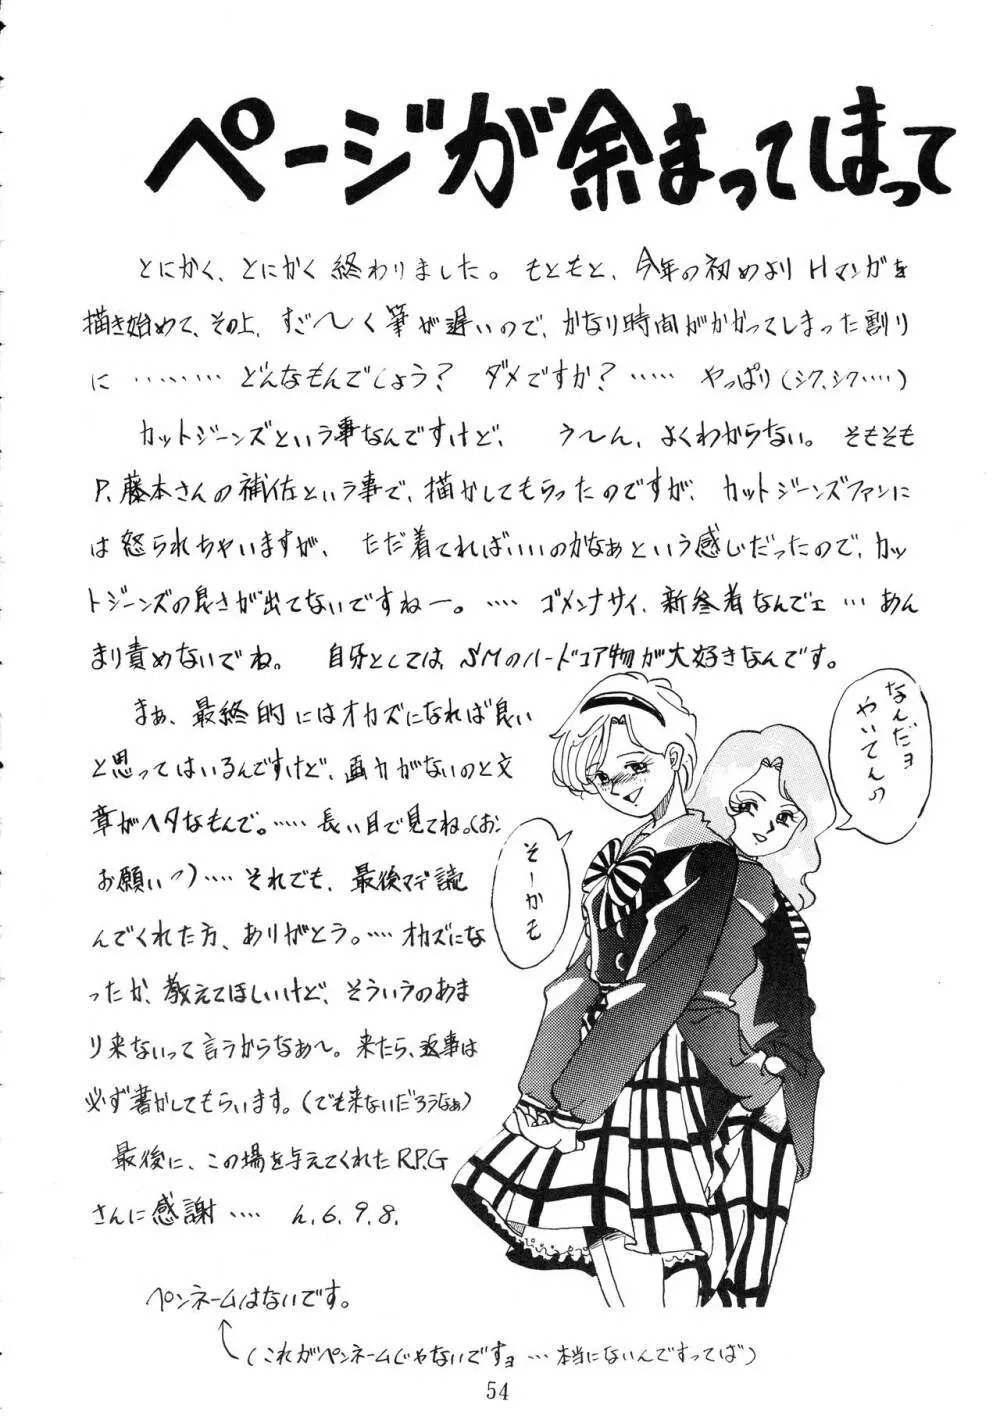 ページが余まってしまって
とにかく、とにかく終わりました。もともと、今年の初めよりHマンガを
描き始めて、その上、すご〜く筆が遅いので、かなり時間がかかってしまった割り
に………どんなもんでしょう？ダメですか？……やっぱり（シク、シク……）
カットジーンズという事なんですけど、う〜ん、よくわからない。そもそも
P.藤本さんの補佐という事で、描かしてもらったのですが、カットジーンズファンに
は怒られちゃいますが、ただ着てればいいのかなぁという感じだったので、カッ
トジーンズの良さが出てないですねー。…ゴメンナサイ、新参者なんでェ…あん
まり責めないでね。自分としては、SMのハードコア物が大好きなんです。
まぁ、最終的にはオカズになれば良い
と思ってはいるんですけど、画力がないのと文
章がヘタなもんで。……長い目で見てね。（お、
お願いっ）…それでも、最後マデ読
んでくれた方、ありがとう。…オカズにな
ったか、教えてほしいけど、そういうのあま
り来ないって言うからなぁ〜。来たら、返事は
必ず書かしてもらいます。（でも来ないだろうなぁ）
最後に、この場を与えてくれたR.P.G
さんに感謝…… h.6.9.8.
なんだヨ
やいてんの
そーかも
ペンネームはないです。
（これがペンネームじゃないですョ…本当にないんですってば）
54